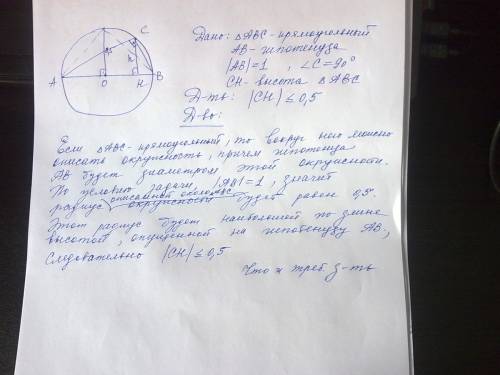 Дано: △ABC-прямоугольный
AB-гипотенуза
|AB|=1 , ∠C=90°
CH-высота △ABC
Д-ть: |CH| ≤ 0,5
Д-во:
C
A
O
H
B
Если △ABC-прямоугольный, то вокруг него можно
описать окружность, причем гипотенуза
AB будет диаметром этой окружности.
По условию задачи, |AB|=1, значит
радиус описанной около △ABC окружности будет равен 0,5.
Этот радиус будет наибольшей по длине
высотой, опущенной на гипотенузу AB,
следовательно |CH| ≤ 0,5
Что и треб. д-ть